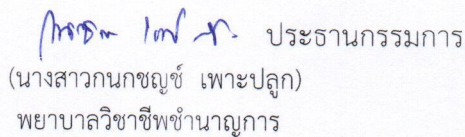 ประธานกรรมการ
(นางสาวกนกชญช์ เพาะปลูก)
พยาบาลวิชาชีพชำนาญการ